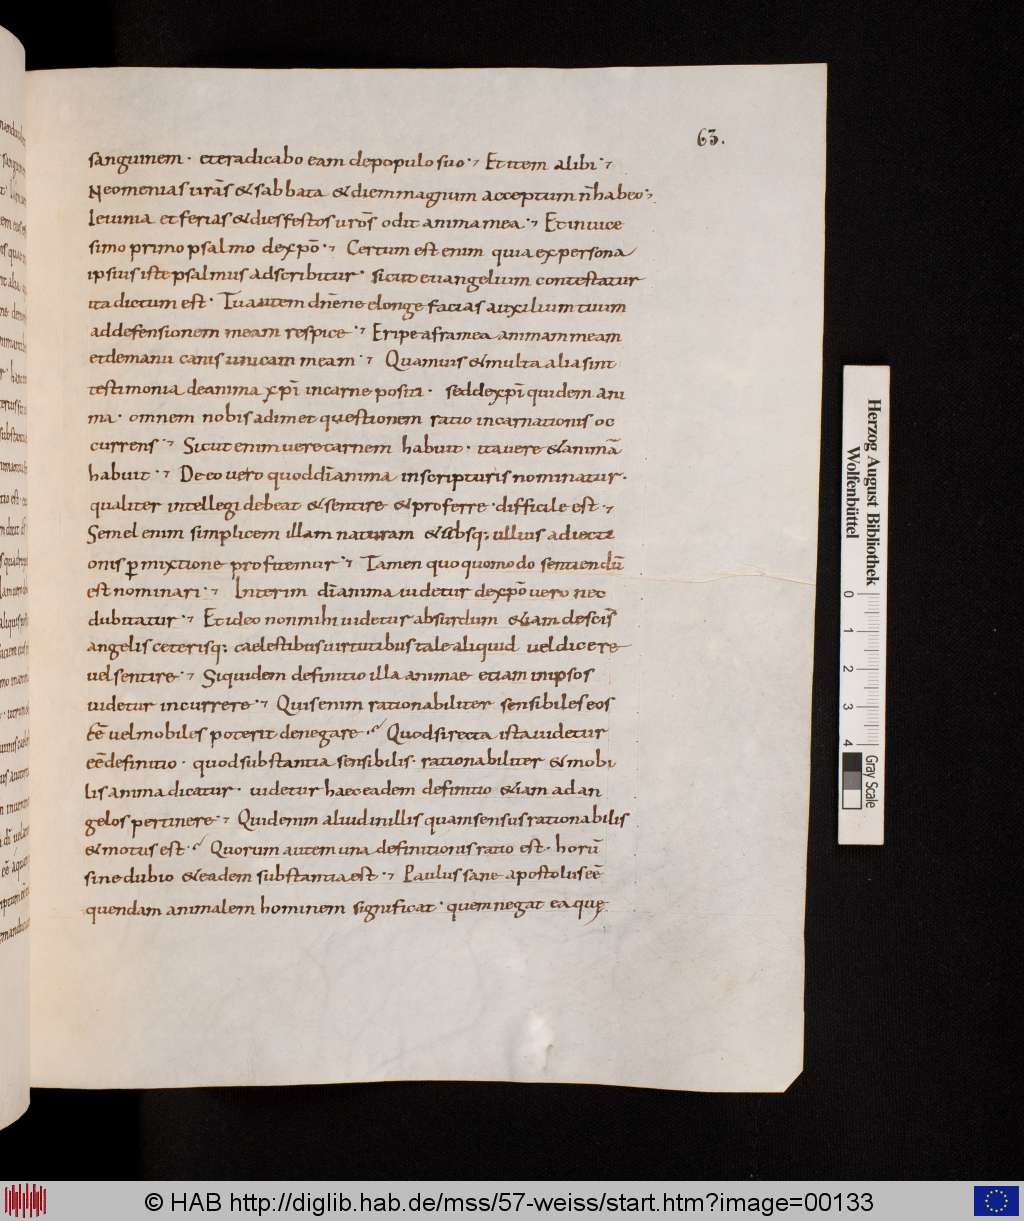 63.
sanguinem · et eradicabo eam de populo suo · Et item alibi ·
Neomenias urās & sabbata & diem magnum acceptum n̄ habeo ·
Ieiunia et ferias & dies festos urōs odit anima mea · Et in uice
simo primo psalmo de xp̄o · Certum est enim quia ex persona
ipsius iste psalmus adscribitur · sicut euangelium contestatur
ita dictum est · Tu autem dn̄e ne elonge facias auxilium tuum
ad defensionem meam respice · Eripe a framea animam meam
et de manu canis unicam meam · Quamuis & multa alia sint
testimonia de anima xp̄i in carne positi · sed de xp̄i quidem ani
ma · omnem nobis adimet questionem ratio incarnationis oc
currens · Sicut enim uere carnem habuit · ita uere & animā
habuit · De eo uero quod dī anima in scripturis nominatur ·
qualiter intellegi debeat & sentire & proferre · difficile est ·
Semel enim simplicem illam naturam & absq; ullius adiecti
onis ꝑmixtione profitemur · Tamen quoquo modo sentiendū
est nominari · Interim dī anima uidetur de xp̄o uero nec
dubitatur · Et ideo non mihi uidetur absurdum &iam de sc̄is
angelis ceterisq; caelestibus uirtutibus tale aliquid uel dicere
uel sentire · Siquidem definitio illa animae etiam in ipsos
uidetur incurrere · Quis enim rationabiliter sensibiles eos
ēē uel mobiles poterit denegare · Quod si recta ista uidetur
ēē definitio · quod substantia sensibilis · rationabiliter & mobi
lis anima dicatur · uidetur haec eadem definitio &iam ad an
gelos pertinere · Quid enim aliud in illis quam sensus rationabilis
& motus est · Quorum autem una definitionis ratio est · horū
sine dubio & eadem substantia est · Paulus sane apostolus ēē
quendam animalem hominem significat · quem negat ea quę
Herzog August Bibliothek
Wolfenbüttel
0 1 2 3 4
Gray Scale
© HAB http://diglib.hab.de/mss/57-weiss/start.htm?image=00133